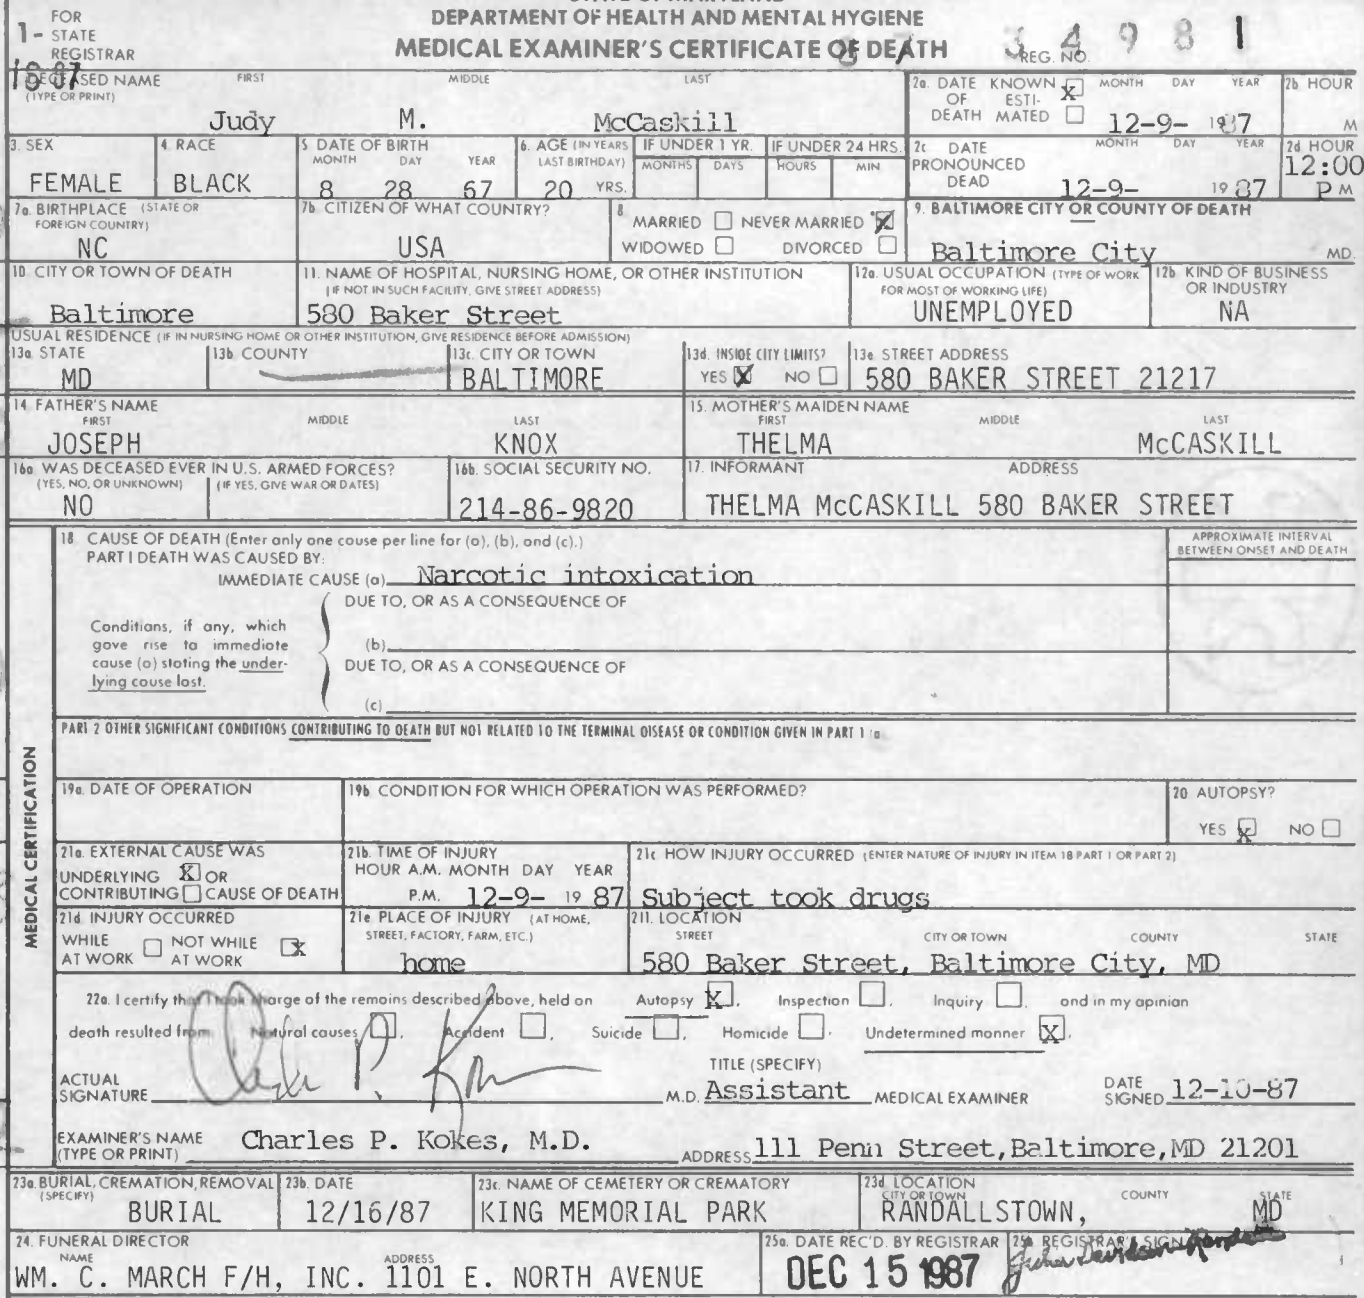 FOR
1- STATE
REGISTRAR
DEPARTMENT OF HEALTH AND MENTAL HYGIENE
MEDICAL EXAMINER'S CERTIFICATE OF DEATH
REG. NO. 34981
DECEASED NAME FIRST MIDDLE LAST
(TYPE OR PRINT)
Judy M. McCaskill
2a. DATE OF DEATH KNOWN X ESTIMATED MONTH DAY YEAR
12-9- 1987
2b HOUR
M
3. SEX
FEMALE
4. RACE
BLACK
5 DATE OF BIRTH
MONTH DAY YEAR
8 28 67
6. AGE (IN YEARS LAST BIRTHDAY)
20 YRS.
IF UNDER 1 YR.
MONTHS DAYS
IF UNDER 24 HRS.
HOURS MIN
2c DATE PRONOUNCED DEAD MONTH DAY YEAR
12-9- 1987
2d HOUR
12:00
P M
7a. BIRTHPLACE (STATE OR FOREIGN COUNTRY)
NC
7b CITIZEN OF WHAT COUNTRY?
USA
8 MARRIED NEVER MARRIED X
WIDOWED DIVORCED
9. BALTIMORE CITY OR COUNTY OF DEATH
Baltimore City MD.
10. CITY OR TOWN OF DEATH
Baltimore
11. NAME OF HOSPITAL, NURSING HOME, OR OTHER INSTITUTION
(IF NOT IN SUCH FACILITY, GIVE STREET ADDRESS)
580 Baker Street
12a. USUAL OCCUPATION (TYPE OF WORK FOR MOST OF WORKING LIFE)
UNEMPLOYED
12b KIND OF BUSINESS OR INDUSTRY
NA
USUAL RESIDENCE (IF IN NURSING HOME OR OTHER INSTITUTION, GIVE RESIDENCE BEFORE ADMISSION)
13a STATE
MD
13b COUNTY
13c. CITY OR TOWN
BALTIMORE
13d. INSIDE CITY LIMITS?
YES X NO
13e STREET ADDRESS
580 BAKER STREET 21217
14 FATHER'S NAME
FIRST MIDDLE LAST
JOSEPH KNOX
15. MOTHER'S MAIDEN NAME
FIRST MIDDLE LAST
THELMA McCASKILL
16a WAS DECEASED EVER IN U.S. ARMED FORCES?
(YES, NO, OR UNKNOWN) (IF YES, GIVE WAR OR DATES)
NO
16b. SOCIAL SECURITY NO.
214-86-9820
17. INFORMANT ADDRESS
THELMA McCASKILL 580 BAKER STREET
MEDICAL CERTIFICATION
18 CAUSE OF DEATH (Enter only one cause per line for (a), (b), and (c).)
PART I DEATH WAS CAUSED BY:
IMMEDIATE CAUSE (a) Narcotic intoxication
APPROXIMATE INTERVAL
BETWEEN ONSET AND DEATH
DUE TO, OR AS A CONSEQUENCE OF
Conditions, if any, which
gave rise to immediate
cause (a) stating the under-
lying cause last.
(b)
DUE TO, OR AS A CONSEQUENCE OF
(c)
PART 2 OTHER SIGNIFICANT CONDITIONS CONTRIBUTING TO DEATH BUT NOT RELATED TO THE TERMINAL DISEASE OR CONDITION GIVEN IN PART 1 a
19a. DATE OF OPERATION
19b. CONDITION FOR WHICH OPERATION WAS PERFORMED?
20 AUTOPSY?
YES X NO
21a. EXTERNAL CAUSE WAS
UNDERLYING X OR
CONTRIBUTING CAUSE OF DEATH
21b. TIME OF INJURY
HOUR A.M. MONTH DAY YEAR
P.M. 12-9- 19 87
21c HOW INJURY OCCURRED (ENTER NATURE OF INJURY IN ITEM 18 PART 1 OR PART 2)
Subject took drugs
21d INJURY OCCURRED
WHILE AT WORK NOT WHILE AT WORK X
21e PLACE OF INJURY (AT HOME, STREET, FACTORY, FARM, ETC.)
home
21f. LOCATION
STREET CITY OR TOWN COUNTY STATE
580 Baker Street, Baltimore City, MD
22a. I certify that I took charge of the remains described above, held on Autopsy X, Inspection , Inquiry , and in my opinion
death resulted from Natural causes , Accident , Suicide , Homicide , Undetermined manner X.
ACTUAL
SIGNATURE
TITLE (SPECIFY)
M.D. Assistant MEDICAL EXAMINER
DATE SIGNED 12-10-87
EXAMINER'S NAME
(TYPE OR PRINT) Charles P. Kokes, M.D.
ADDRESS 111 Penn Street, Baltimore, MD 21201
23a. BURIAL, CREMATION, REMOVAL
(SPECIFY)
BURIAL
23b. DATE
12/16/87
23c. NAME OF CEMETERY OR CREMATORY
KING MEMORIAL PARK
23d LOCATION
CITY OR TOWN COUNTY STATE
RANDALLSTOWN, MD
24. FUNERAL DIRECTOR
NAME ADDRESS
WM. C. MARCH F/H, INC. 1101 E. NORTH AVENUE
25a. DATE REC'D. BY REGISTRAR
DEC 15 1987
25b REGISTRAR'S SIGN